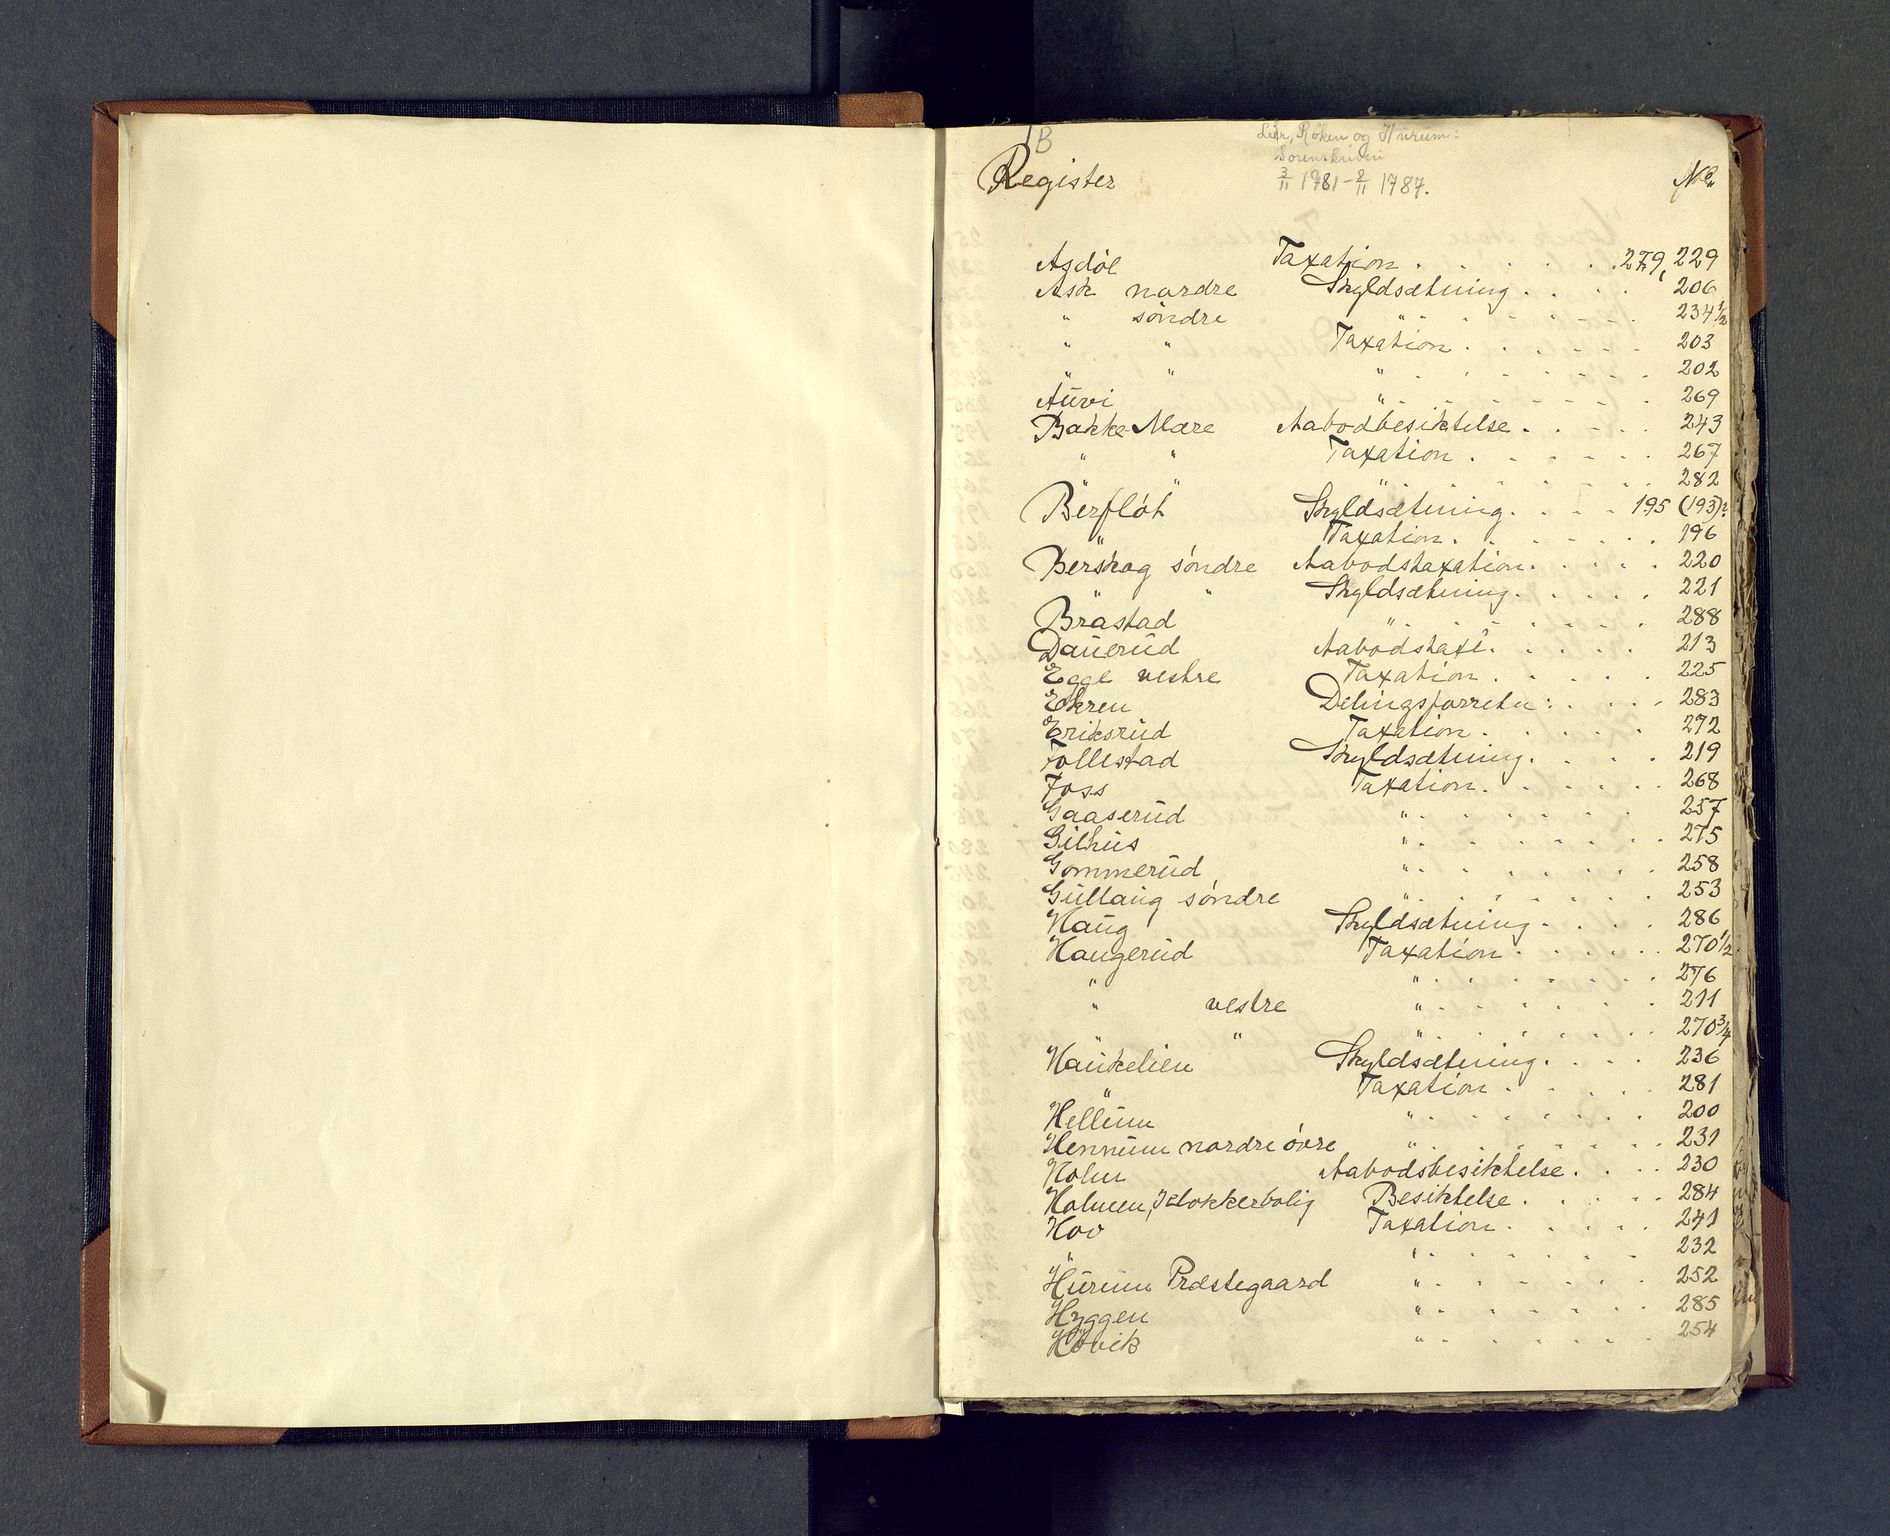 1B
Lier, Röken og Hurum:
Sorenskriveri
3/11 1781 - 8/11 1787.
Register No.
Asdöl Taxation . . . . . . 279, 229
Ask nordre Skyldsætning . . . . 206
" söndre " . . . . . . 234 1/2
" " Taxation . . . . . . 203
" " " . . . . . . 202
Auvi " . . . . . . 269
Bakke Mære Aabodbesiktelse . . . . . 243
" " Taxation . . . . . . 267
" " " . . . . . . 282
Berflót Skyldsætning . . . . 195 (193)?
" Taxation . . . . . . 196
Berskog söndre Aabodstaxation . . . . . 220
" " Skyldsætning . . . . . 221
Brastad " . . . . . . 288
Dauerud Aabodstaxt . . . . . 213
Egge vestre Taxation . . . . . 225
Ekren Delingsforretn: . . . . 283
Eriksrud Taxation . . . . . 272
Follestad Skyldsætning . . . . . 219
Foss Taxation . . . . . . 268
Gaaserud " . . . . . . 257
Gilhus " . . . . . . 275
Gommerud " . . . . . . 258
Gullaug söndre " . . . . . . 253
Haug Skyldsætning . . . . 286
Haugerud Taxation . . . . . . 270 1/2
" " . . . . . . 276
" vestre " . . . . . . 211
" " " . . . . . . 270 3/4
Haukelien Skyldsætning . . . . 236
" Taxation . . . . . 281
Hellum " . . . . . . 200
Hennum nordre óvre " . . . . . . 231
Holm Aabodsbesiktelse . . . . 230
Holmen, Klokkerbolig Besiktelse . . . . . 284
Hov Taxation . . . . . 241
" " . . . . . . 232
Hurum Præstegaard " . . . . . . 252
Hyggen " . . . . . . 285
Hövik " . . . . . . 254